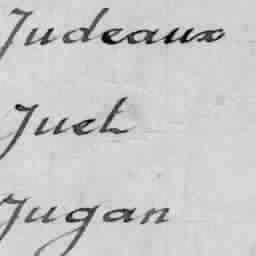 Judeaux
Juet
Jugan